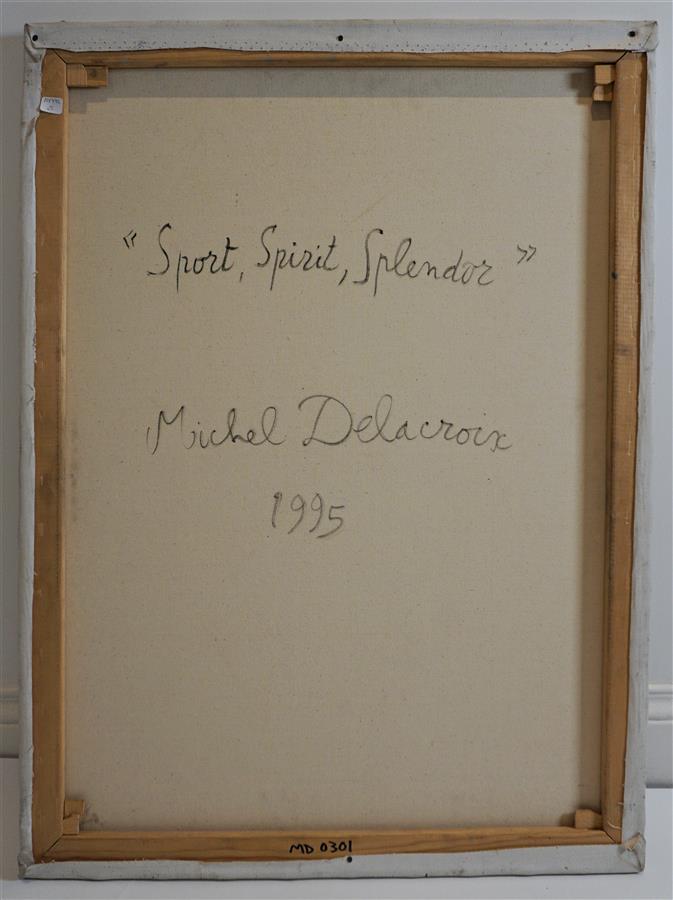 « Sport, Spirit, Splendor »
Michel Delacroix
1995
MD 0301